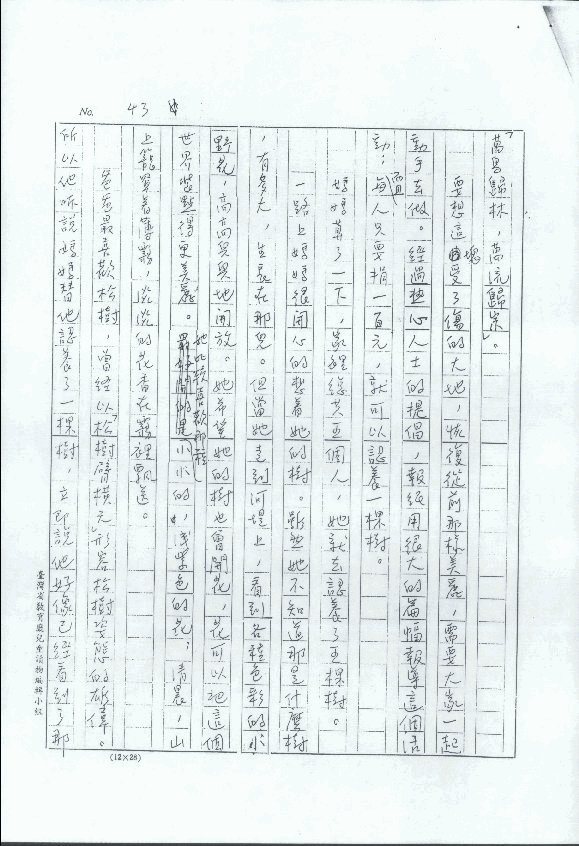 No. 43
「萬馬歸林,萬流歸宗」。
要想這塊受了傷的大地,恢復從前那樣美麗,需要大家一起
動手去做。經過熱心人士的提倡,報紙用很大的篇幅報導這個活
動;每人只要捐一百元,就可以認養一棵樹。
媽媽算了一下,家裡總共五個人,她就去認養了五棵樹。
一路上媽媽很開心的想著她的樹。雖然她不知道那是什麼樹
,有多大,生長在那兒。但當她走到河堤上,看到各種色彩的小
野花,高高興興地開放。她希望她的樹也會開花,花可以把這個
世界裝點得更美麗。她比較喜歡那種小小的,淺紫色的花;清晨,山
上籠罩着薄霧,淡淡的花香在霧裡飄送。
爸爸最喜歡松樹,曾經以「松樹臂橫天」形容松樹姿態的雄偉。
所以他听說媽媽替他認養了一棵樹 立即說他好像已經看到了那
臺灣省教育廳兒童讀物編輯小組
(12×25)